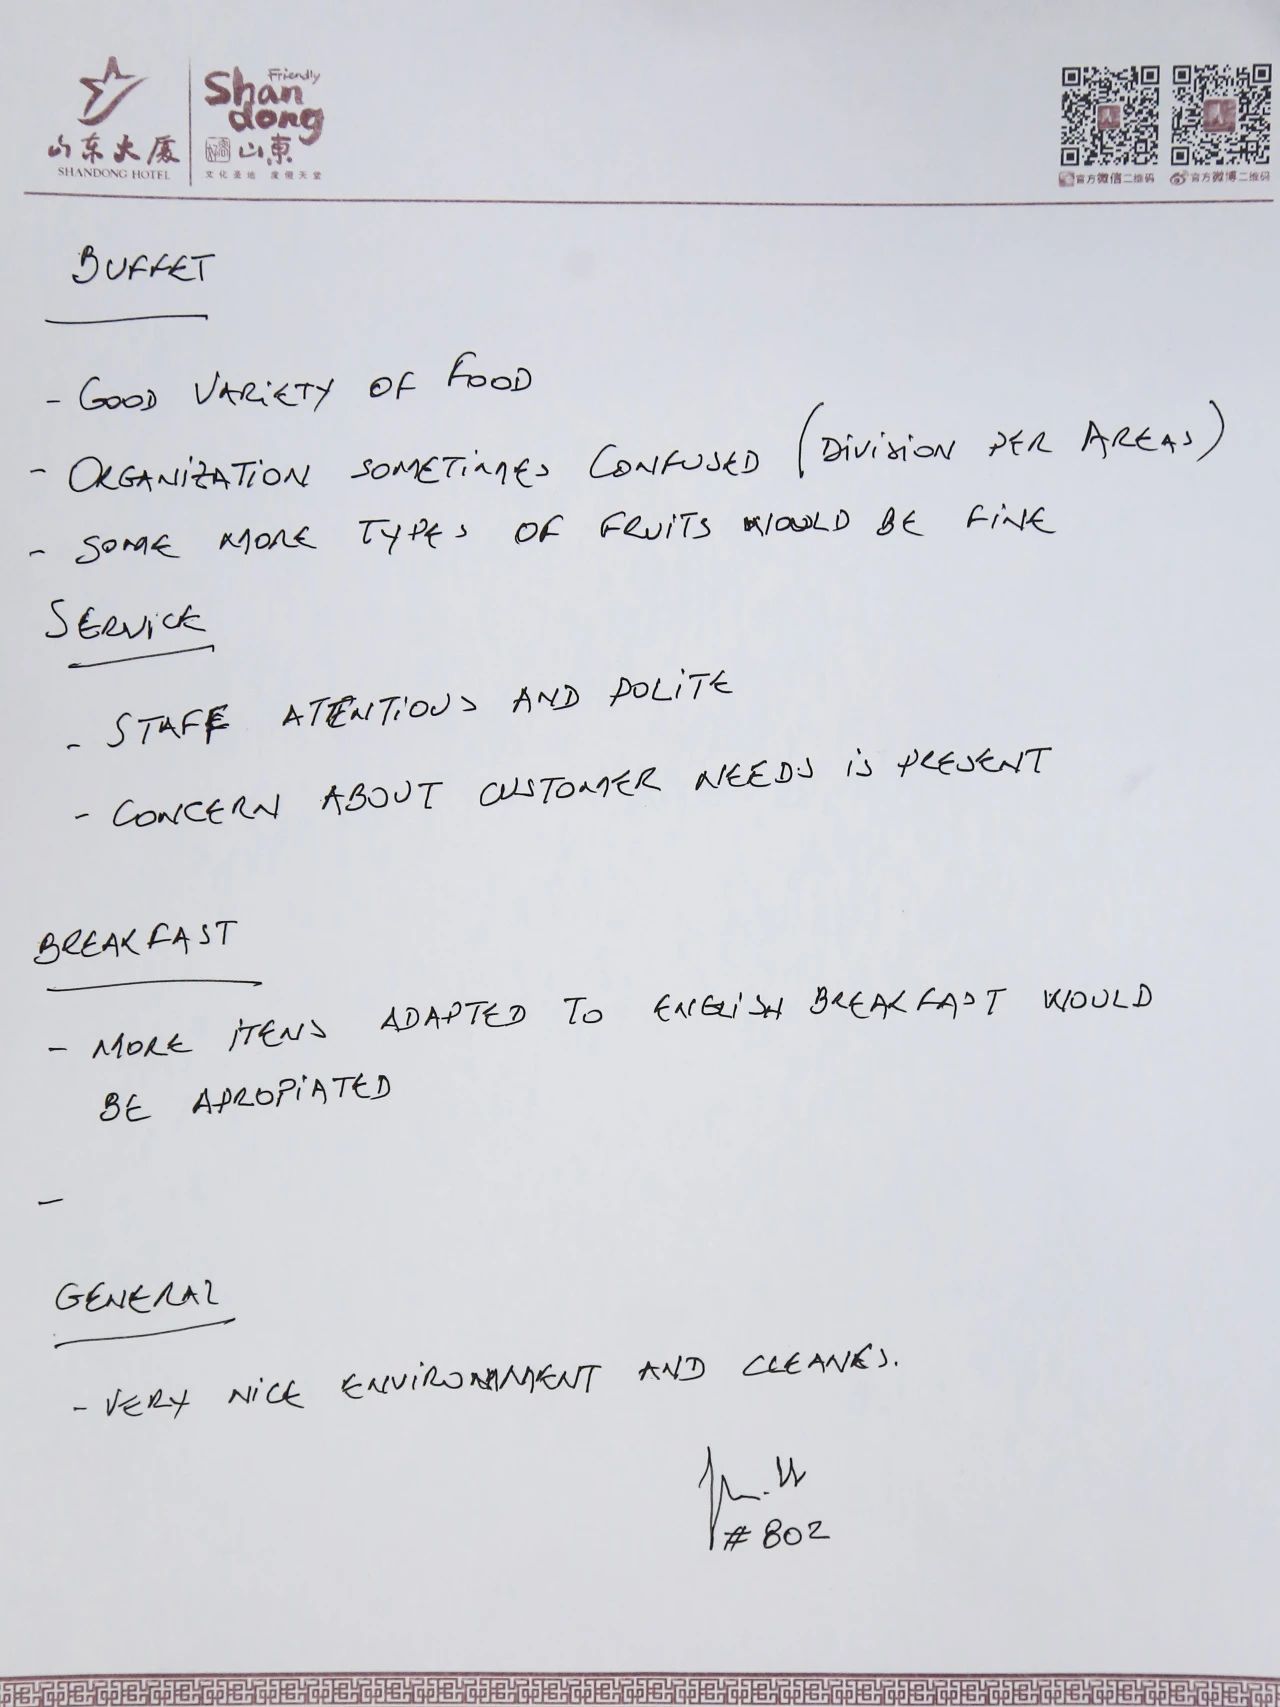 山东大厦
SHANDONG HOTEL
Friendly
Shan
dong
好客山東
文化圣地 度假天堂
官方微信二维码
官方微博二维码
BUFFET
- GOOD VARIETY OF FOOD
- ORGANIZATION SOMETIMES CONFUSED (DIVISION PER AREAS)
- SOME MORE TYPES OF FRUITS WOULD BE FINE
SERVICE
- STAFF ATENTIOUS AND POLITE
- CONCERN ABOUT CUSTOMER NEEDS IS PRESENT
BREAKFAST
- MORE ITENS ADAPTED TO ENGLISH BREAKFAST WOULD
BE APROPIATED
-
GENERAL
- VERY NICE ENVIRONMENT AND CLEANES.
#802